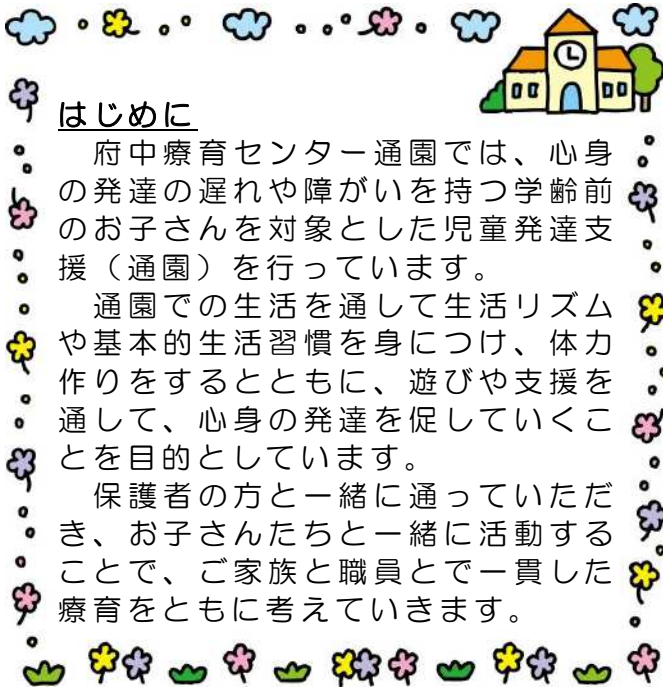 はじめに
府中療育センター通園では、心身
の発達の遅れや障がいを持つ学齢前
のお子さんを対象とした児童発達支
援（通園）を行っています。
通園での生活を通して生活リズム
や基本的生活習慣を身につけ、体力
作りをするとともに、遊びや支援を
通して、心身の発達を促していくこ
とを目的としています。
保護者の方と一緒に通っていただ
き、お子さんたちと一緒に活動する
ことで、ご家族と職員とで一貫した
療育をともに考えていきます。